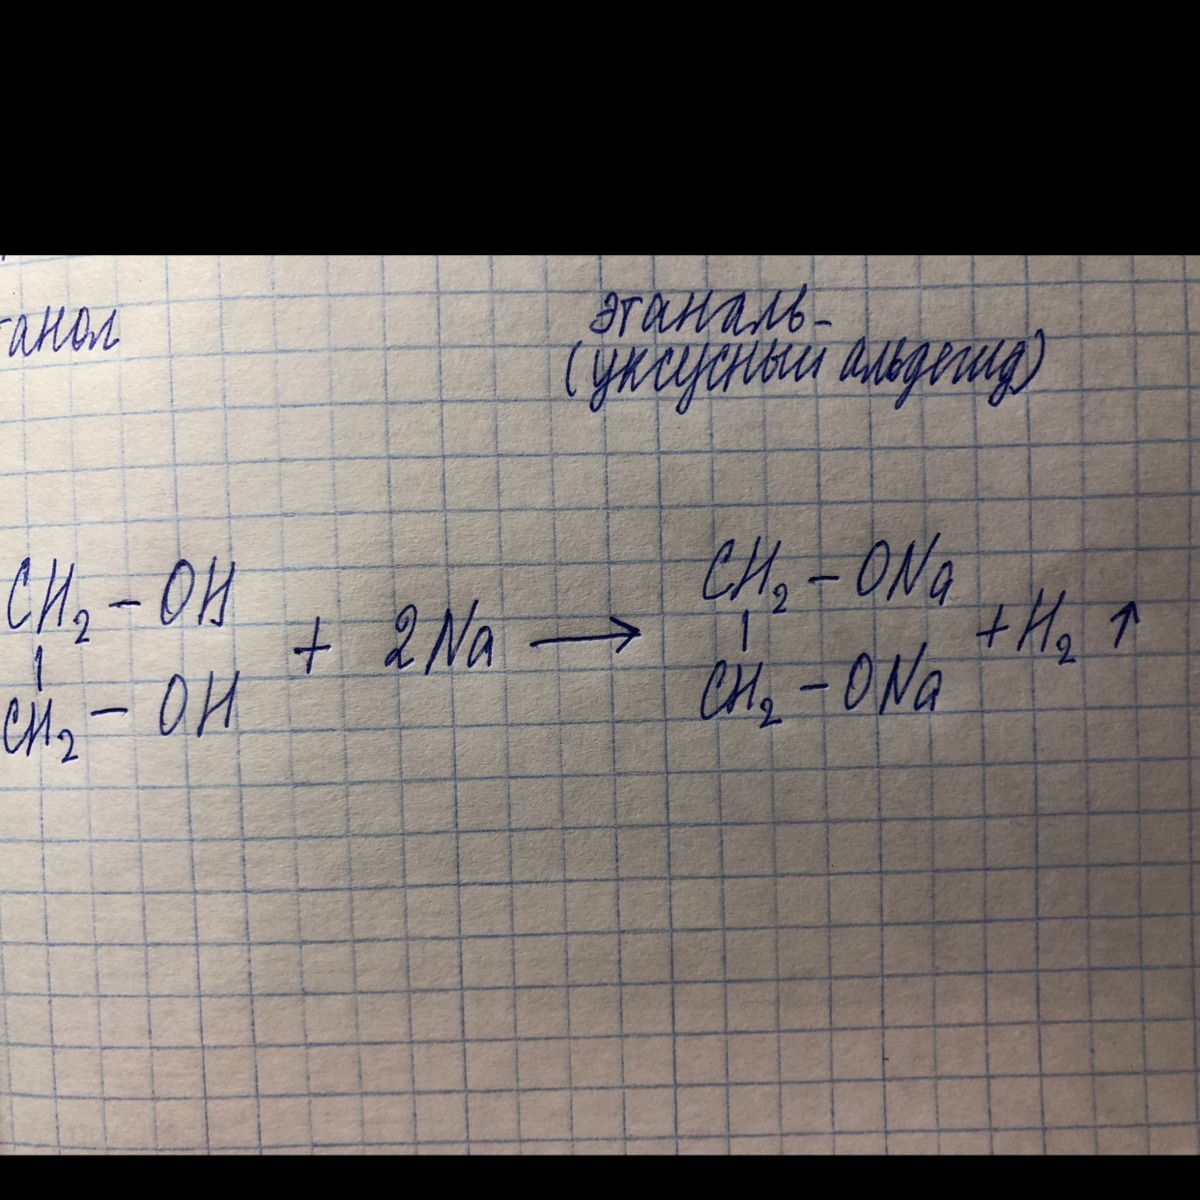 танол
этаналь-
(уксусный альдегид)
CH₂ – OH
CH₂ – ONa
+ 2Na → + H₂ ↑
CH₂ – OH
CH₂ – ONa